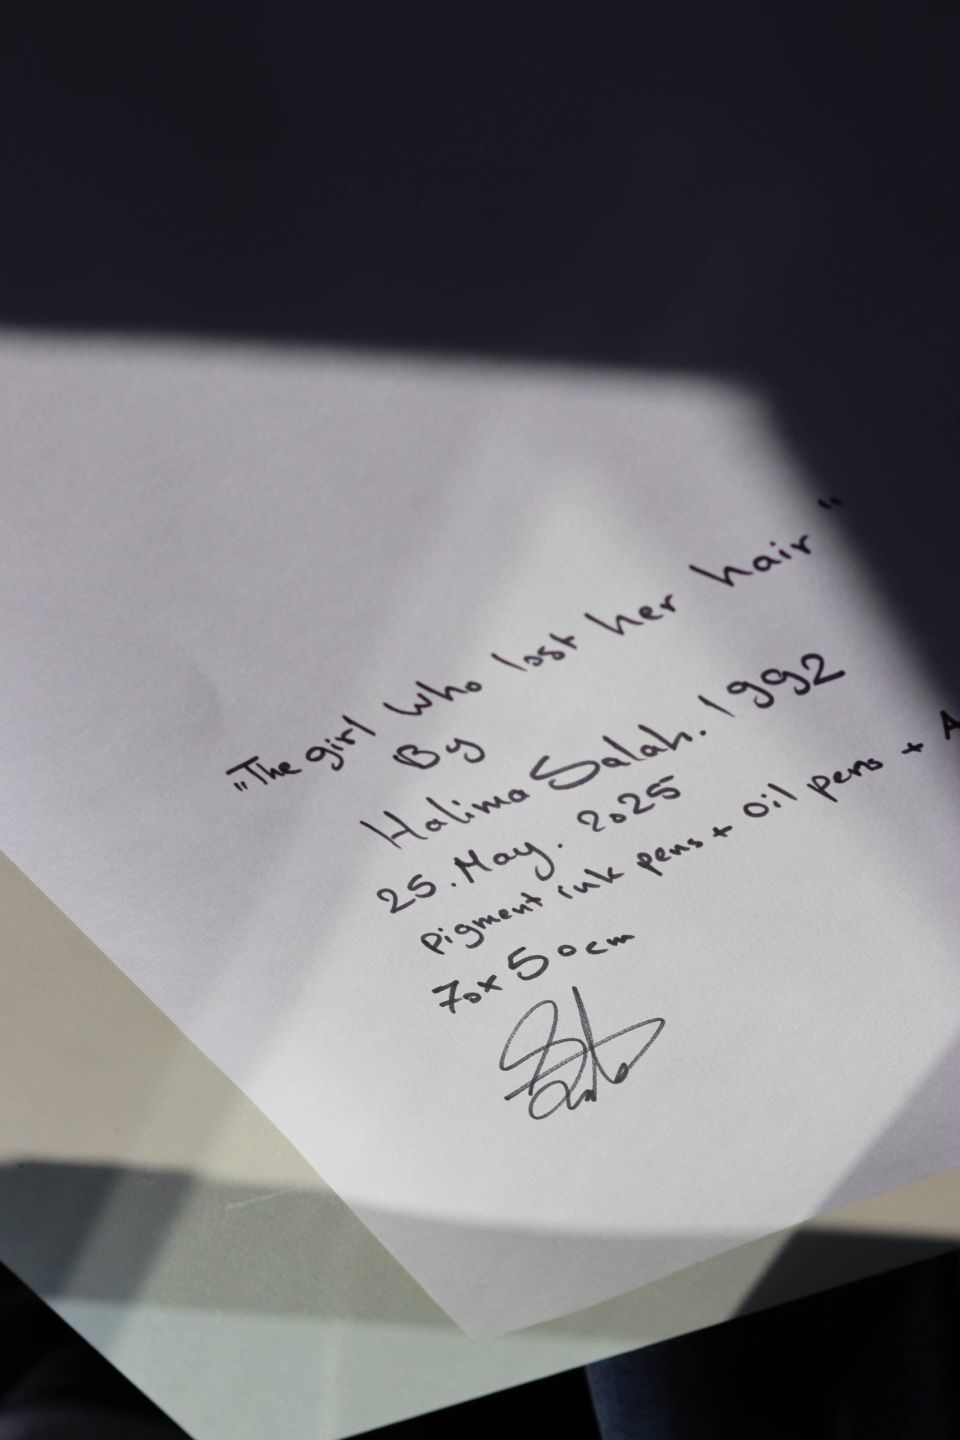 „The girl who lost her hair“
By
Halima Salah. 1992
25. May. 2025
Pigment ink pens + Oil pens +
70x50cm